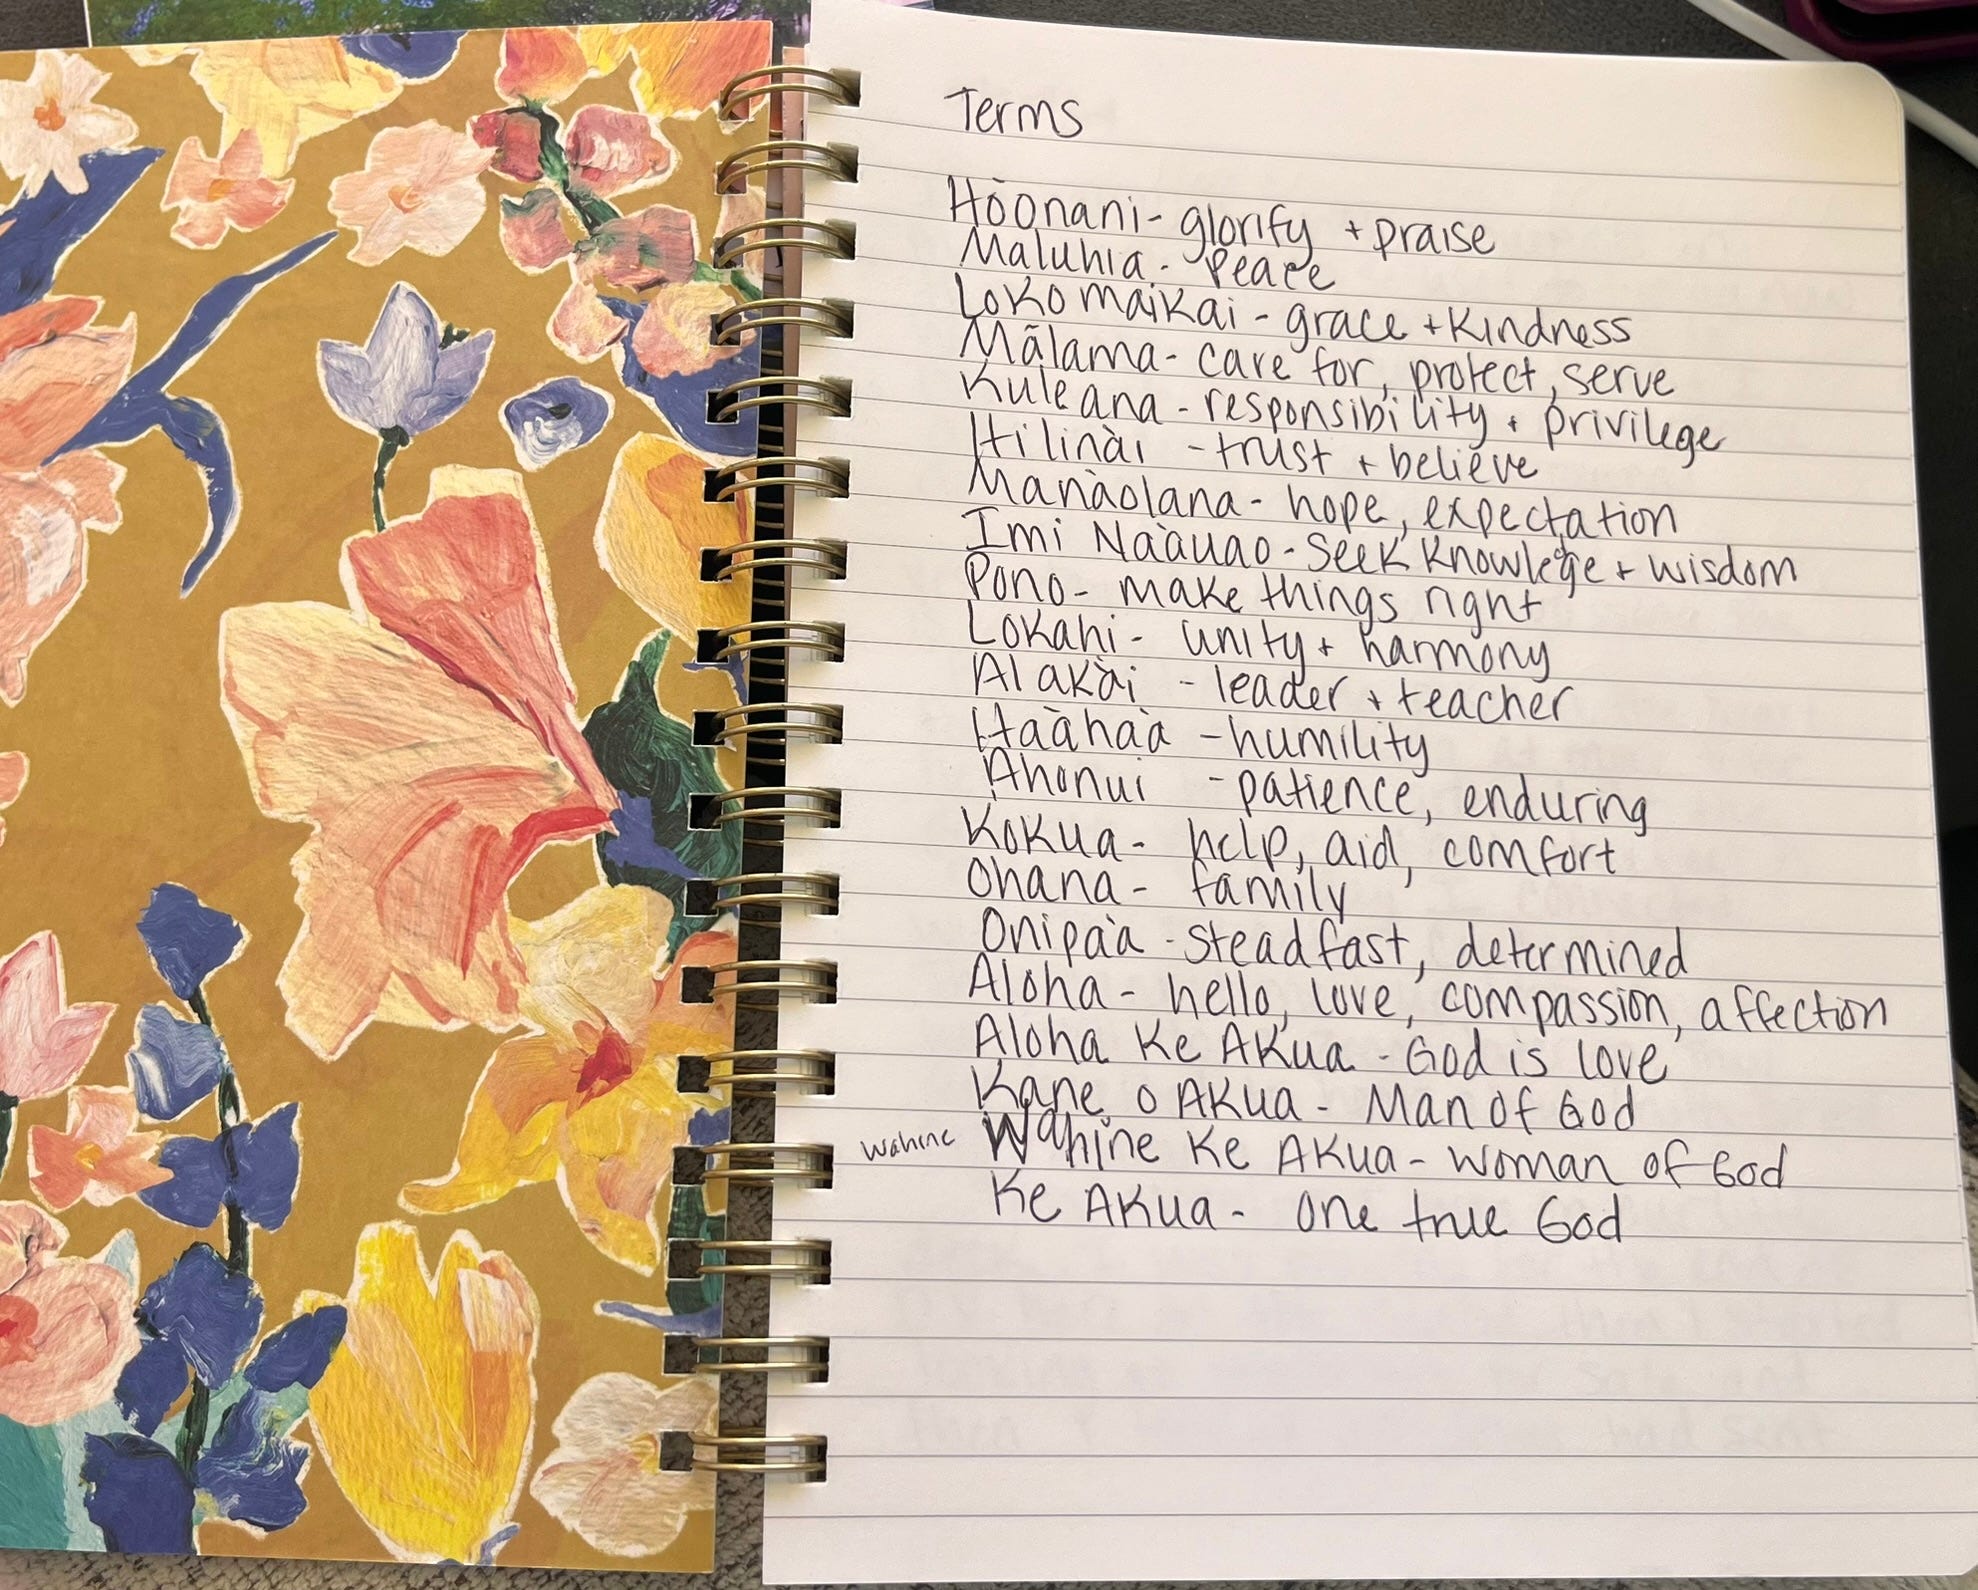 Terms
Hòonani - glorify + praise
Maluhia - Peace
Lokomaikai - grace + kindness
Mālama - care for, protect, serve
Kuleana - responsibility + privilege
Hilinài - trust + believe
Manàolana - hope, expectation
Imi Nàauao - Seek knowledge + wisdom
Pono - make things right
Lokahi - unity + harmony
Alakài - leader + teacher
Haàhaà - humility
Ahonui - patience, enduring
Kokua - help, aid, comfort
Ohana - family
Onipàa - steadfast, determined
Aloha - hello, love, compassion, affection
Aloha Ke Akua - God is love
Kane o Akua - Man of God
Wahine Wahine Ke Akua - woman of God
Ke Akua - one true God